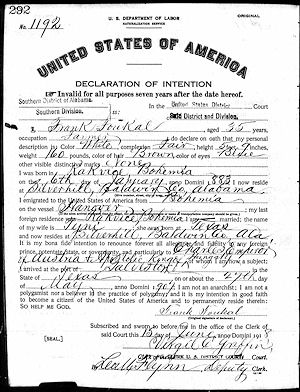 292
U. S. DEPARTMENT OF LABOR
NATURALIZATION SERVICE
ORIGINAL
No. 1192
UNITED STATES OF AMERICA
DECLARATION OF INTENTION
Invalid for all purposes seven years after the date hereof.
Southern District of Alabama, In the United States District Court
Southern Division. Said District and Division.
I, Frank Foukal, aged 35 years,
occupation Farmer, do declare on oath that my personal
description is: Color White, complexion Fair, height 5 feet 7 inches,
weight 160 pounds, color of hair Brown, color of eyes Blue
other visible distinctive marks None
I was born in Bohemia
on the day of January, anno Domini 1883; I now reside
at Silverhill, Baldwin Co, Alabama.
I emigrated to the United States of America from Bohemia
on the vessel Hanover; my last
foreign residence was Bohemia; I am married; the name
of my wife is; she was born in Texas
and now resides at Silverhill, Baldwin Co, Ala
It is my bona fide intention to renounce forever all allegiance and fidelity to any foreign
prince, potentate, state, or sovereignty, and particularly to Charles, Emperor of
Austria and Apostolic King of Hungary, of whom I am now a subject;
I arrived at the port of Galveston, in the
State of Texas, on or about the day
of May, anno Domini 1904; I am not an anarchist; I am not a
polygamist nor a believer in the practice of polygamy; and it is my intention in good faith
to become a citizen of the United States of America and to permanently reside therein:
SO HELP ME GOD.
Frank Foukal
(Original signature of declarant.)
Subscribed and sworn to before me in the office of the Clerk of
said Court this day of June, anno Domini 1918
[SEAL]
Clerk of the U. S. DISTRICT COURT.
By Deputy Clerk.